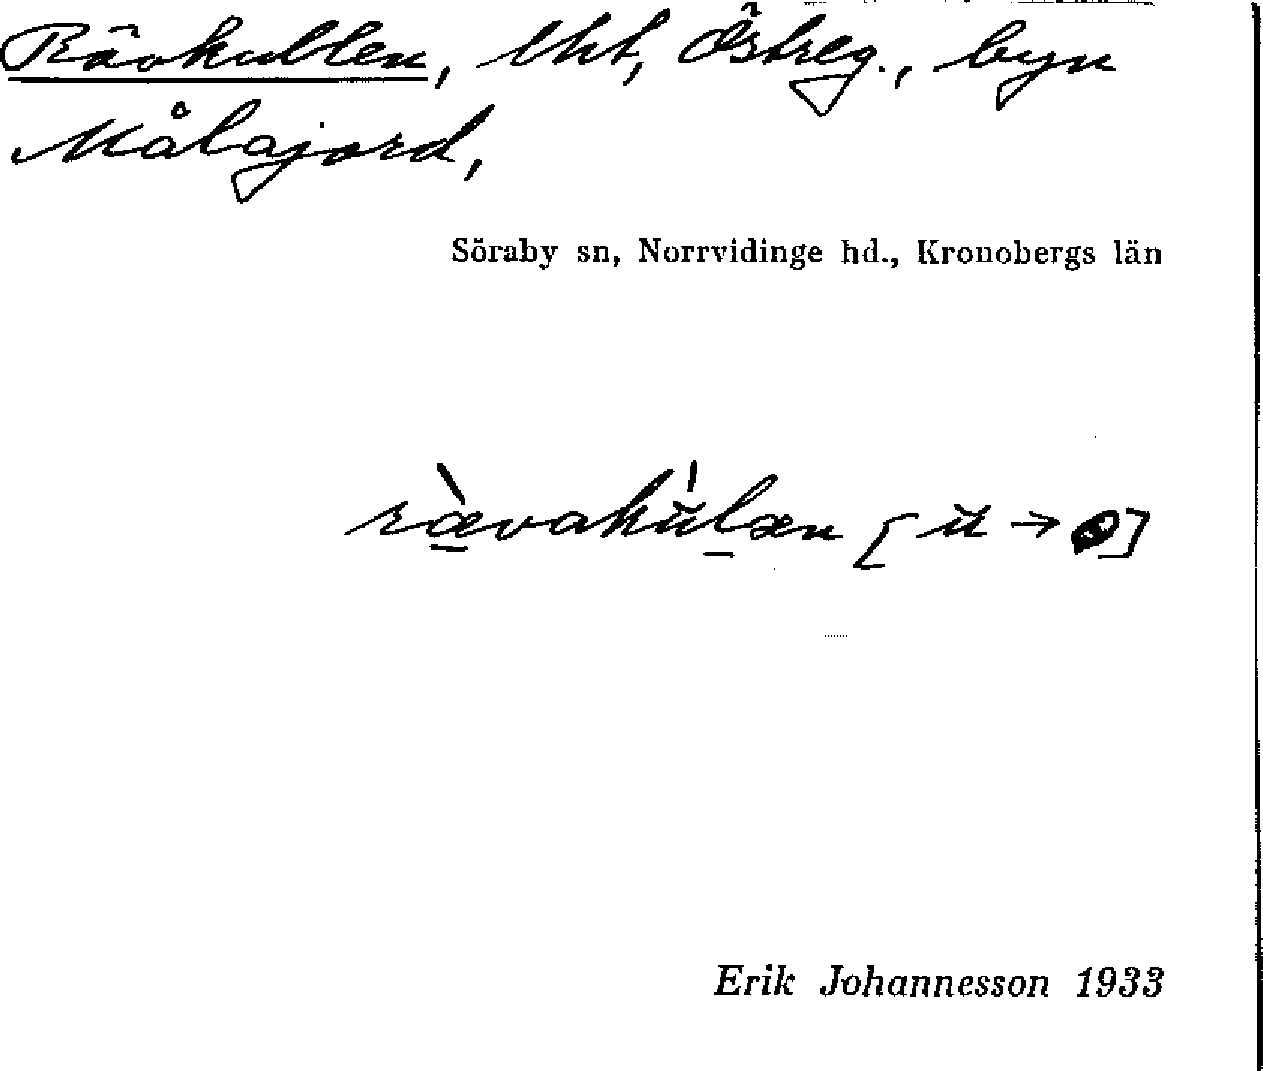 Rävkullen, lht, Östreg., byn
Målajord,
Söraby sn, Norrvidinge hd., Kronobergs län
ræ̀vakŭ'læn [ŭ →
Erik Johannesson 1933